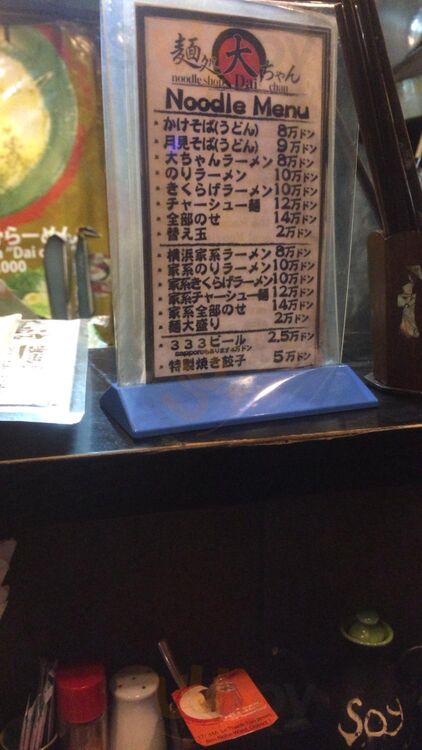 麺処 大ちゃん
noodle shop Dai chan
Noodle Menu
・かけそば(うどん) 8万ドン
・月見そば(うどん) 9万ドン
・大ちゃんラーメン 8万ドン
・のりラーメン 10万ドン
・きくらげラーメン 10万ドン
・チャーシュー麺 12万ドン
・全部のせ 14万ドン
・替え玉 2万ドン
・横浜家系ラーメン 8万ドン
・家系のりラーメン 10万ドン
・家系きくらげラーメン 10万ドン
・家系チャーシュー麺 12万ドン
・家系全部のせ 14万ドン
・麺大盛り 2万ドン
・333ビール 2,5万ドン
sapporoもあります4万ドン
・特製焼き餃子 5万ドン
らーめん
"Dai c
,000
Soy